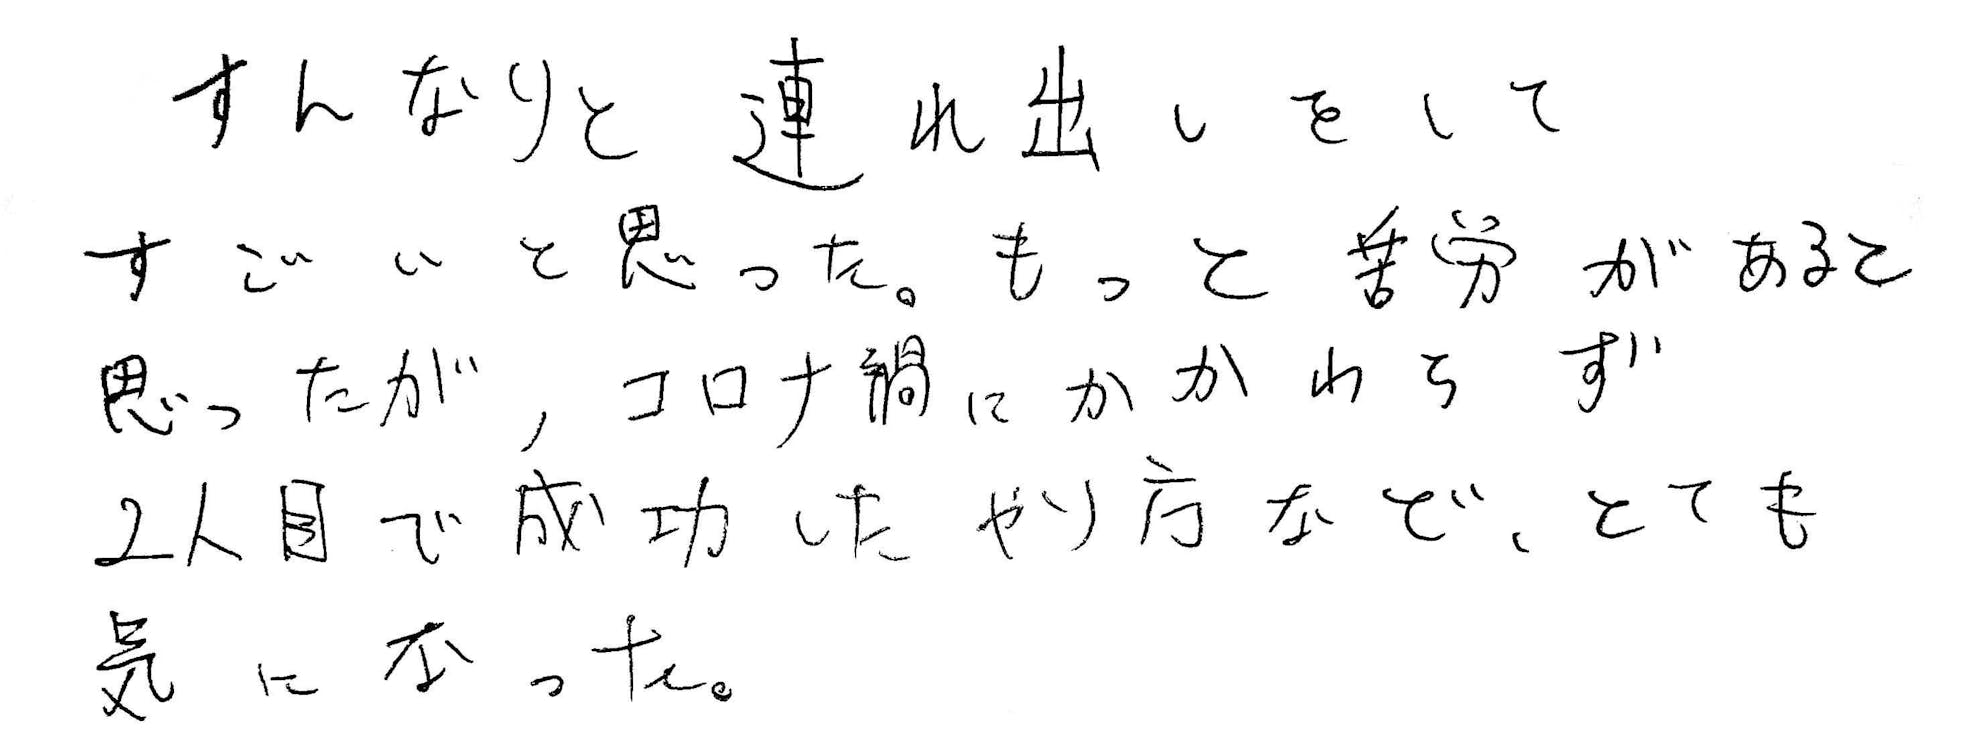 すんなりと連れ出しをして
すごいと思った。もっと苦労があると
思ったが,コロナ禍にかかわらず
2人目で成功したやり方など、とても
気になった。